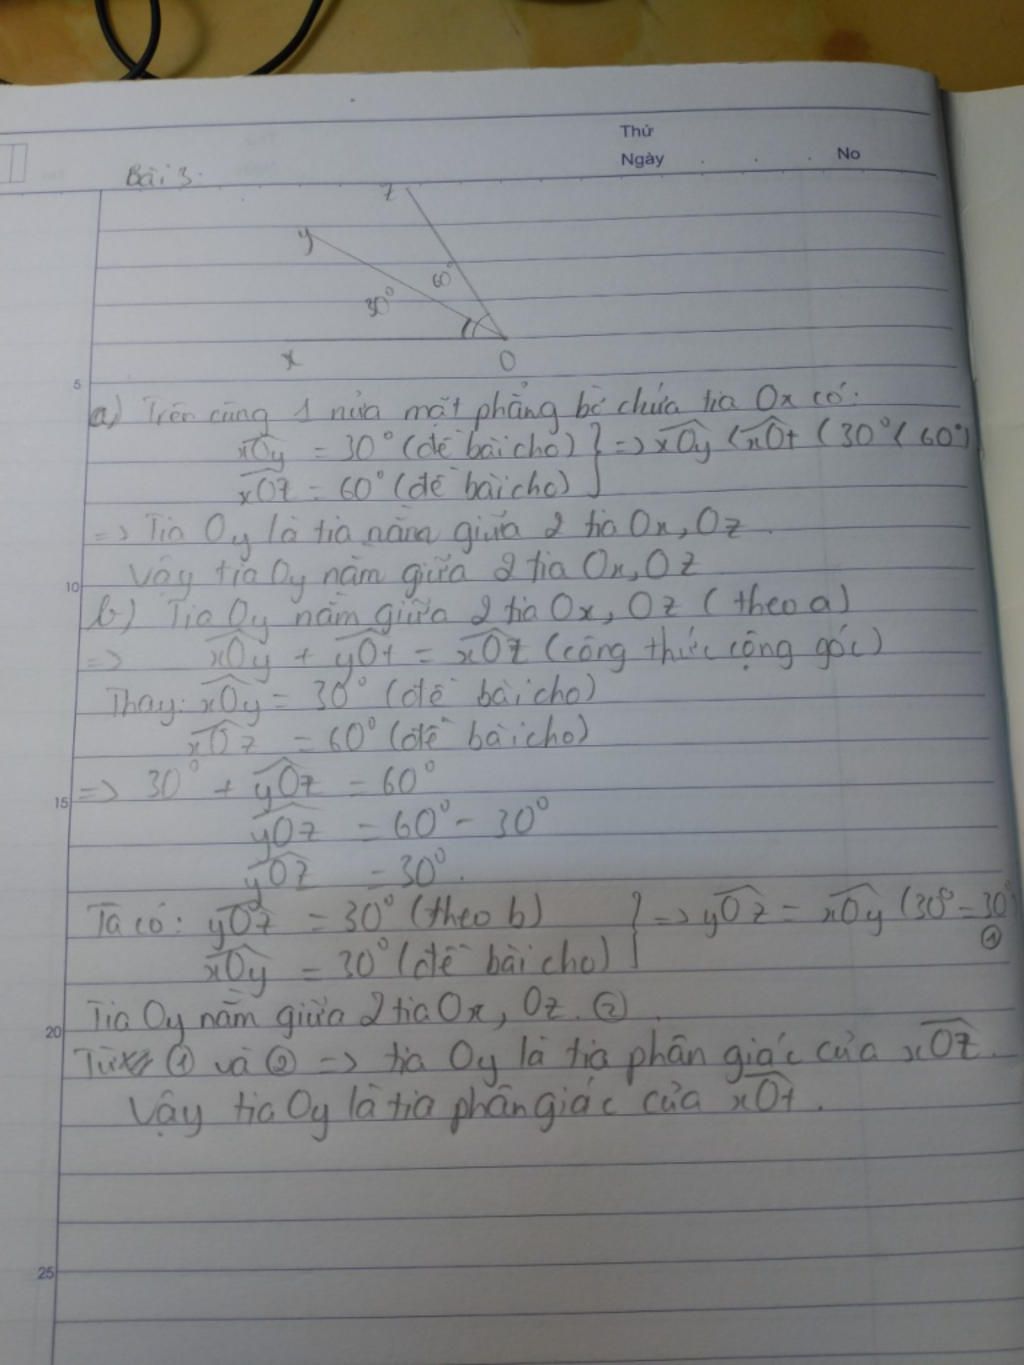 Thứ
Ngày . . . No
Bài 3:
z
y
60°
30°
x O
5
a) Trên cùng 1 nửa mặt phẳng bờ chứa tia Ox có:
xOy = 30° (đề bài cho) } => xOy < xOt (30° < 60°)
xOz = 60° (đề bài cho)
=> Tia Oy là tia nằm giữa 2 tia Ox, Oz.
Vậy tia Oy nằm giữa 2 tia Ox, Oz
10
b) Tia Oy nằm giữa 2 tia Ox, Oz (theo a)
=> xOy + yOt = xOz (công thức cộng góc)
Thay: xOy = 30° (đề bài cho)
xOz = 60° (đề bài cho)
=> 30° + yOz = 60°
15
yOz = 60° - 30°
yOz = 30°.
Ta có: yOz = 30° (theo b) } => yOz = xOy (30° = 30°) ①
xOy = 30° (đề bài cho)
Tia Oy nằm giữa 2 tia Ox, Oz. ②.
20
Từ ① và ② => tia Oy là tia phân giác của xOz.
Vậy tia Oy là tia phân giác của xOt.
25